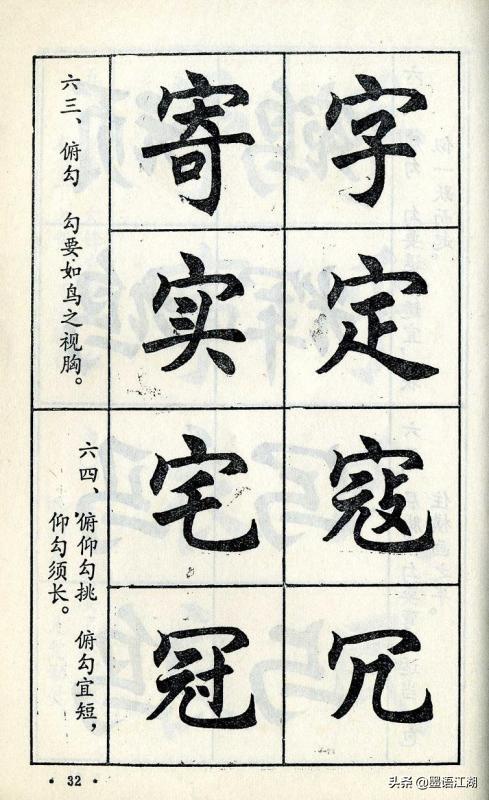 字定寇冗
寄实宅冠
六三、俯勾 勾要如鸟之视胸。
六四、俯仰勾挑 俯勾宜短，
仰勾须长。
·32·
头条 @墨语江湖